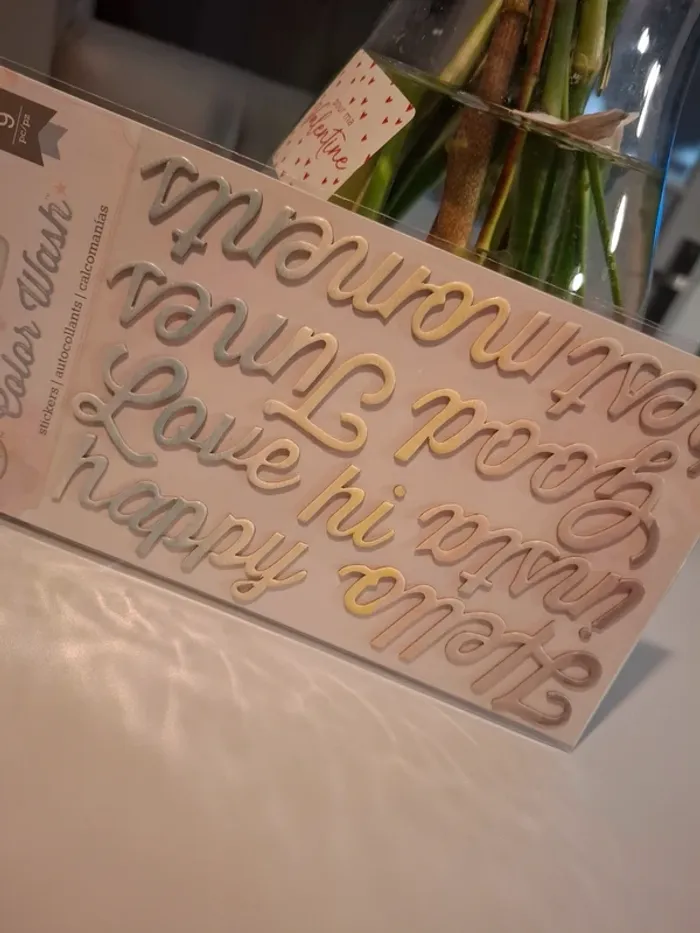 9
pc/pz
Color Wash
stickers | autocollants | calcomanías
Valentine
est moments
Good Times
Love hi insta
happy Hello